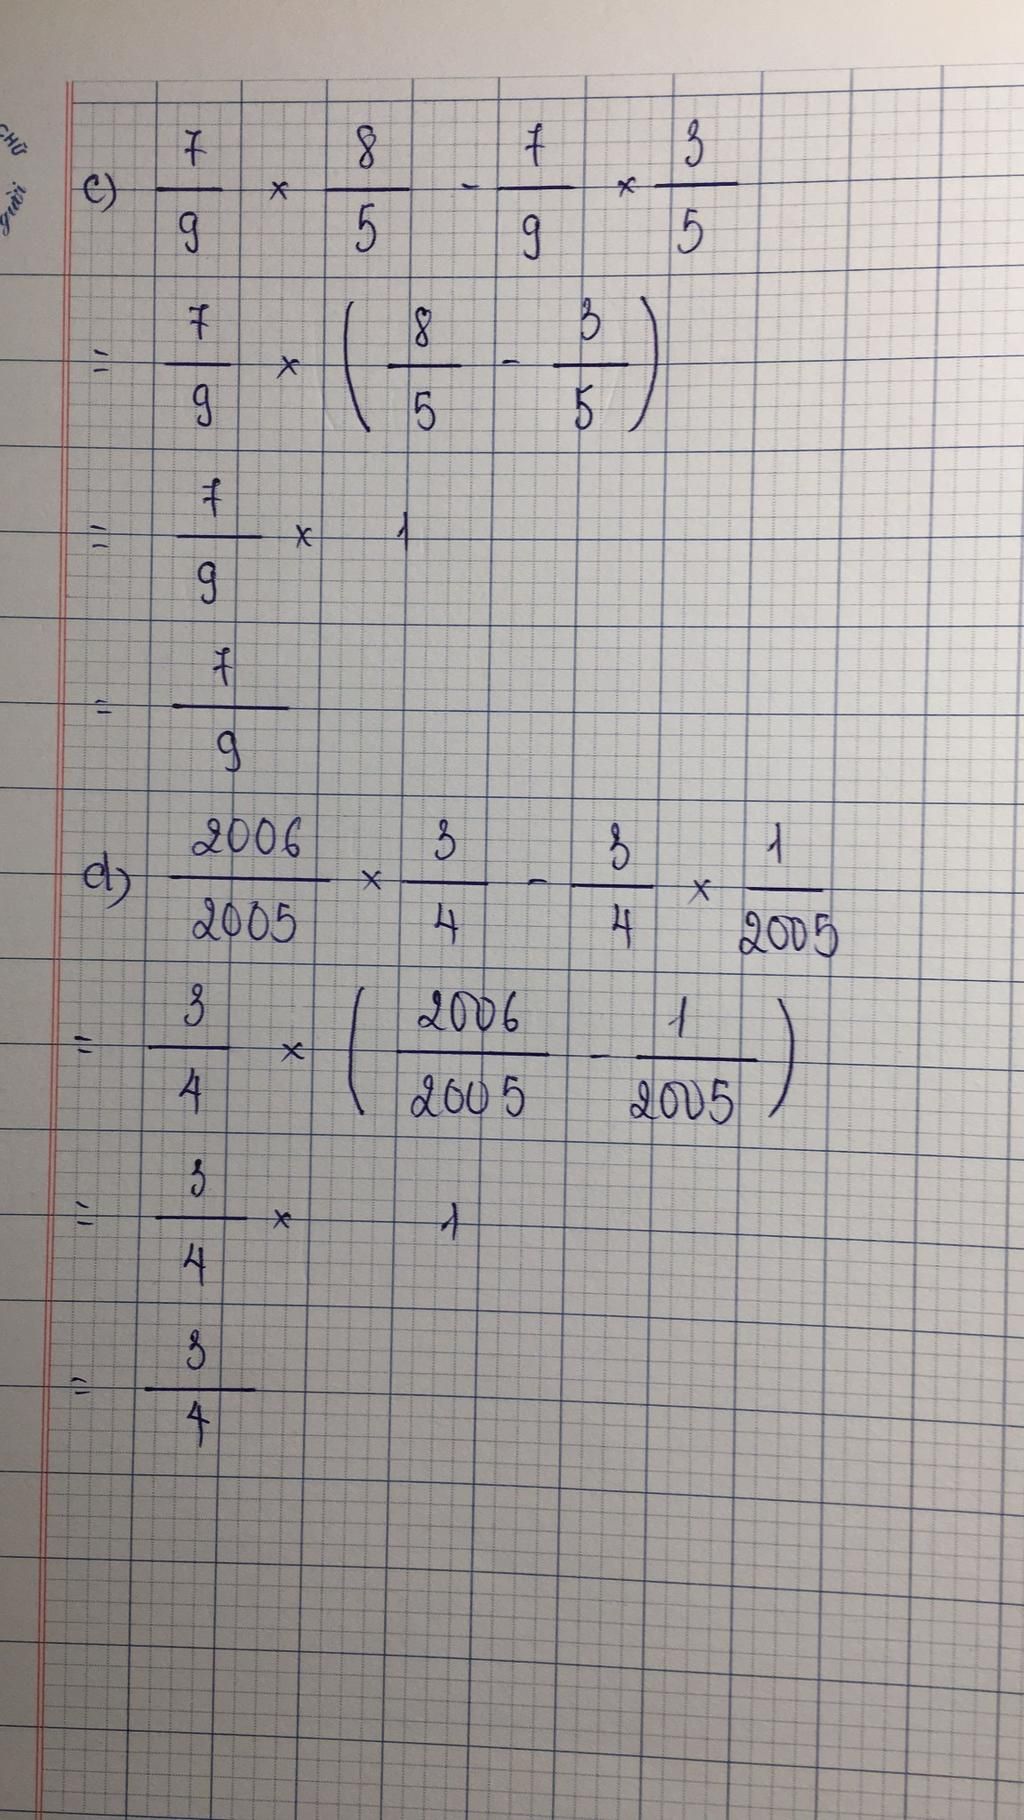 CHỮ
c) 7/9 × 8/5 - 7/9 × 3/5
= 7/9 × (8/5 - 3/5)
= 7/9 × 1
= 7/9
d) 2006/2005 × 3/4 - 3/4 × 1/2005
= 3/4 × (2006/2005 - 1/2005)
= 3/4 × 1
= 3/4